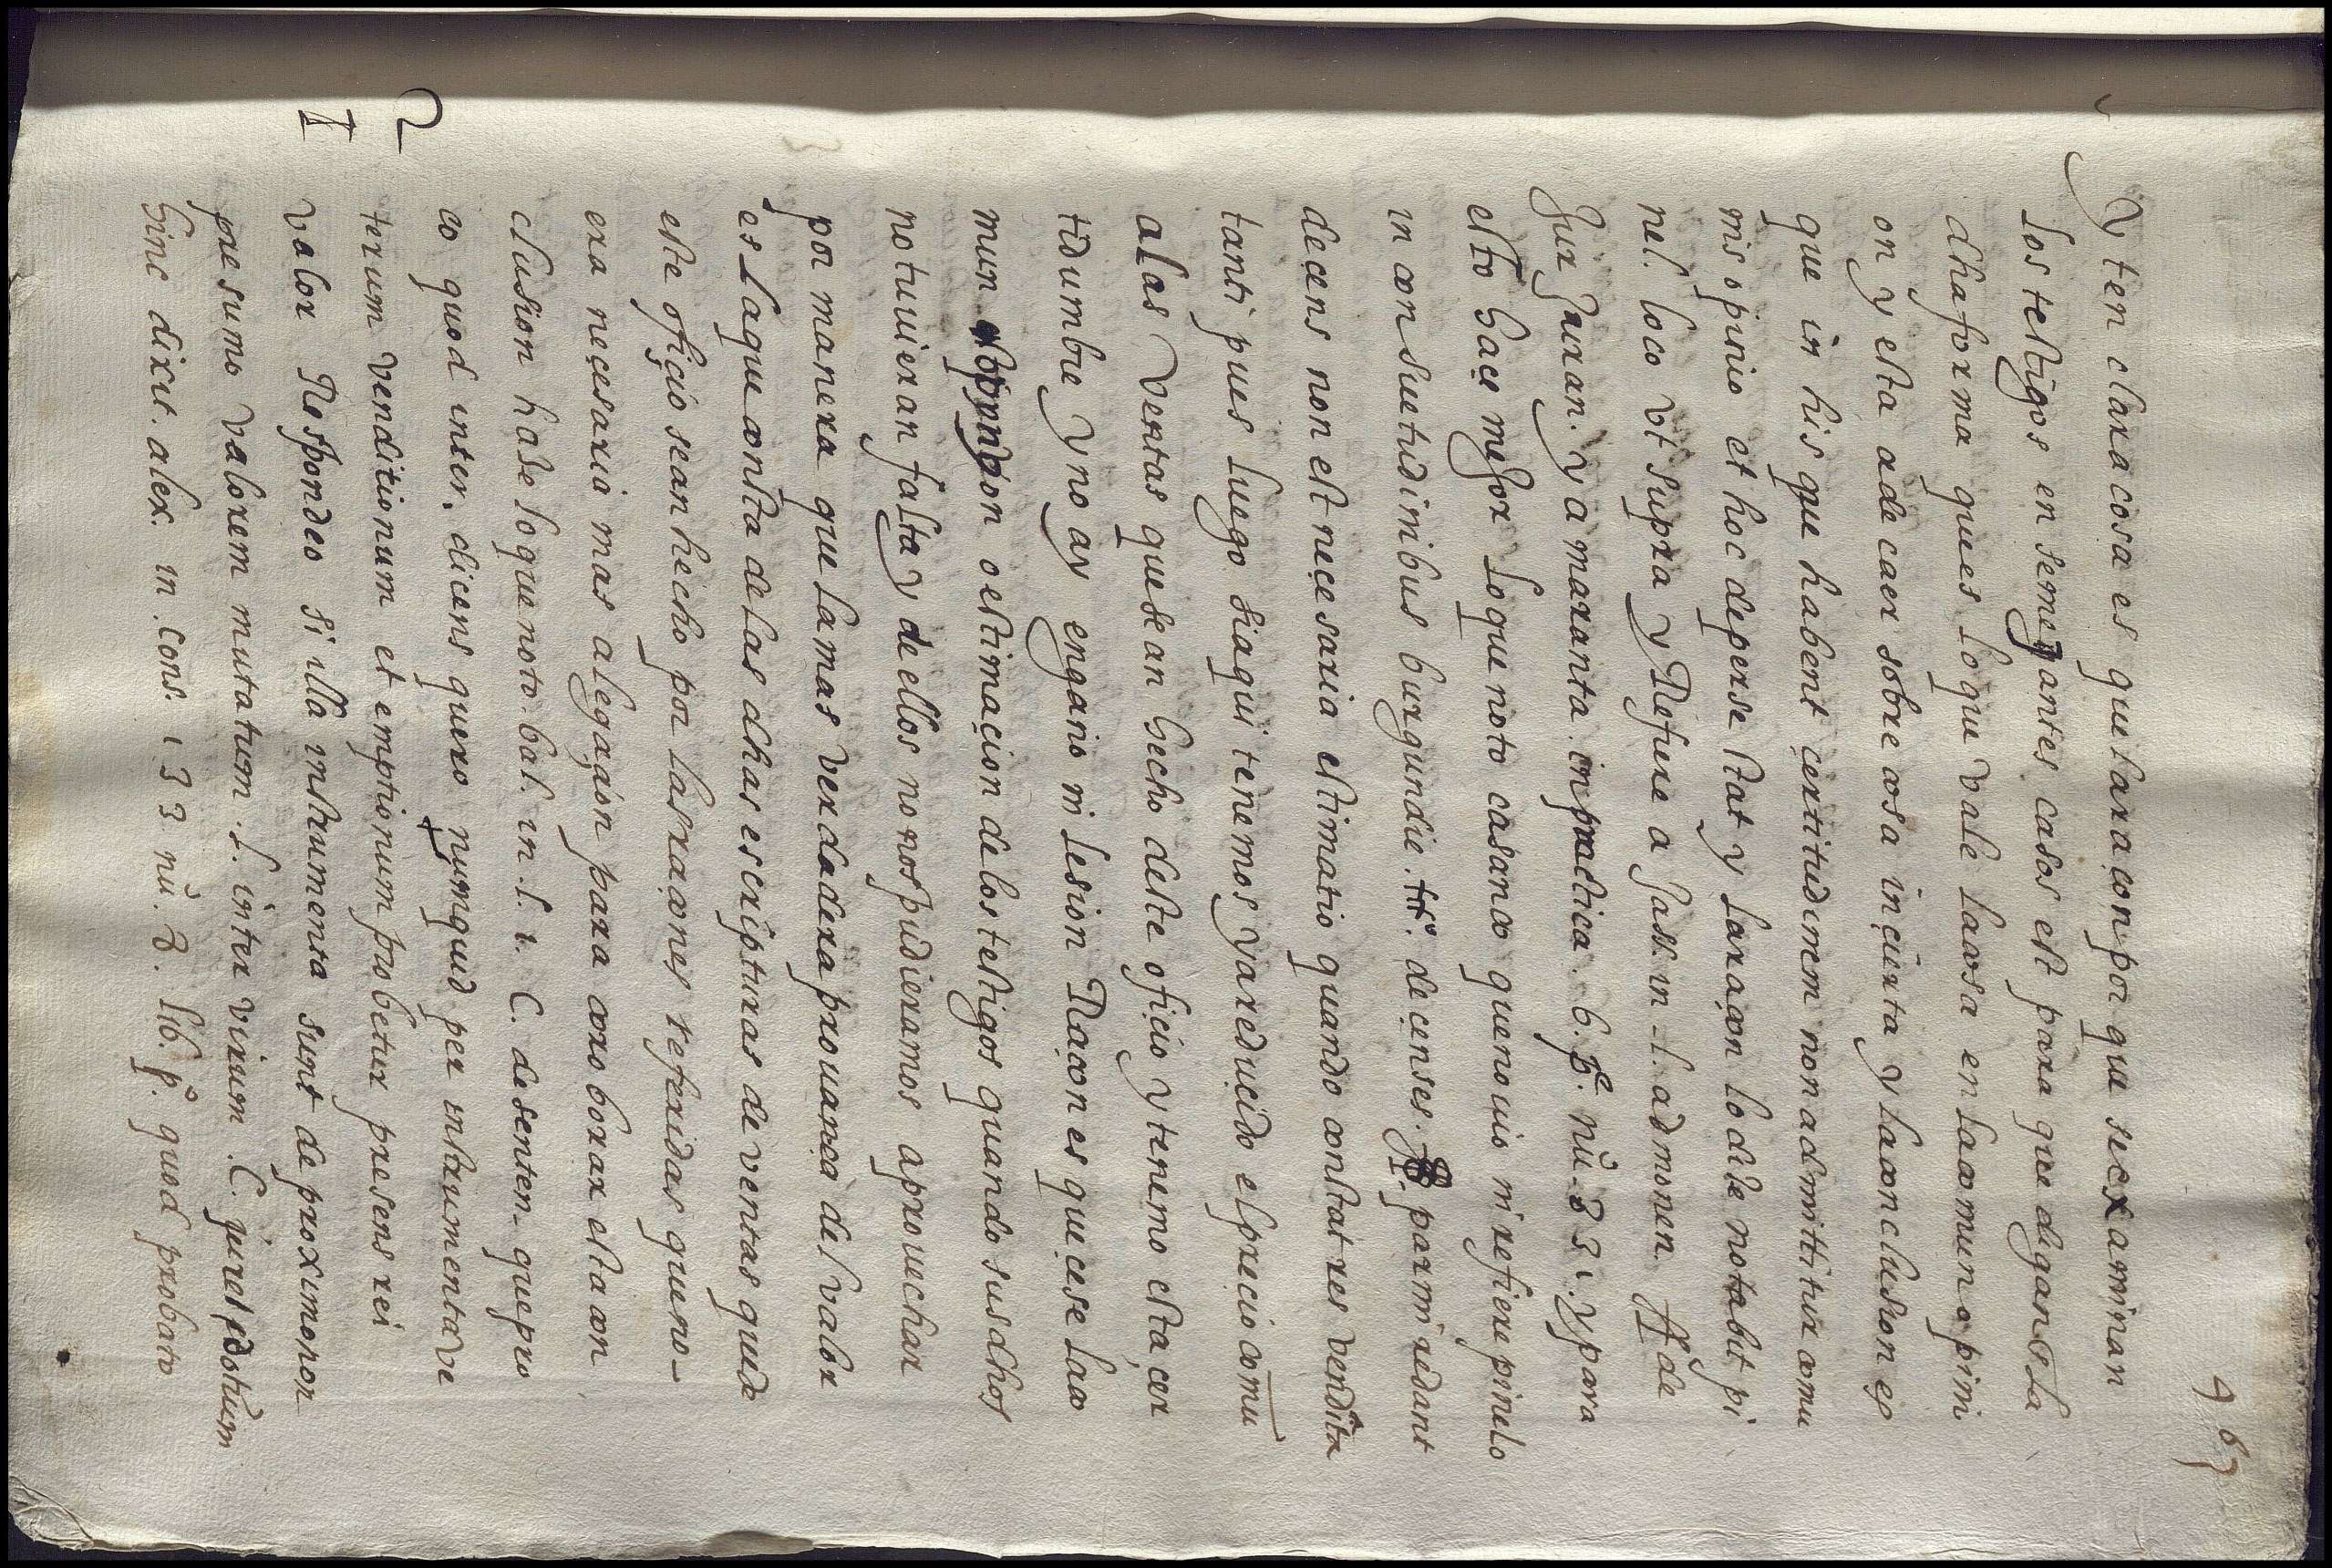 467
Y ten clara cosa es que la raçon por que se examinan
los testigos en semejantes casos est para que digan esta
dha forma que es lo que vale la cosa en la comun opini
on y esta a de caer sobre cosa inçierta y la conclusion es
que in his que habent çertitudinem non admittitur comu
nis opinio et hoc de per se stat y la raçon lo dize notabit pi
nel. loco vt supra y Refiere a Jass. in l. admonen. ff. de
Jur Juran. y a maranta in practica. 6. p. nu. 231. y para
esto haçe mejor lo que noto casaneo que no vio ni refiere pinelo
in consuetudinibus burgundie. tit. de censes. parmi redant
decens non est neçesaria estimatio quando constat res vendita
tanti pues luego si aqui tenemos ya reduçido el preçio comu
a las ventas que sean hecho deste ofiçio y tenemo esta çer
tidumbre y no ay engano ni lesion Raçon es que çese la co
mun opinion o estimaçion de los testigos quando sus dhos
no tuuieran falta y de ellos no nos pudieramos aprouechar
por manera que la mas verdadera prouança del valor
es la que consta de las dhas escripturas de ventas que de
este ofiçio sean hecho por las raçones referidas que no-
era neçesario mas alegaçion para corroborar esta con
clusion haze lo que noto. bal. in. l. 1. C. de senten. que pro
co quod inter. dicens quero numquid per instrumenta ve
terum venditionum et emptionum probetur presens rei
valor Respondeo si illa instrumenta sunt de proximo non
presumo valorem mutatum. l. inter virum. C.
hinc dixit. alex. in. cons. 133 nu. 2. lib. p. quod probato